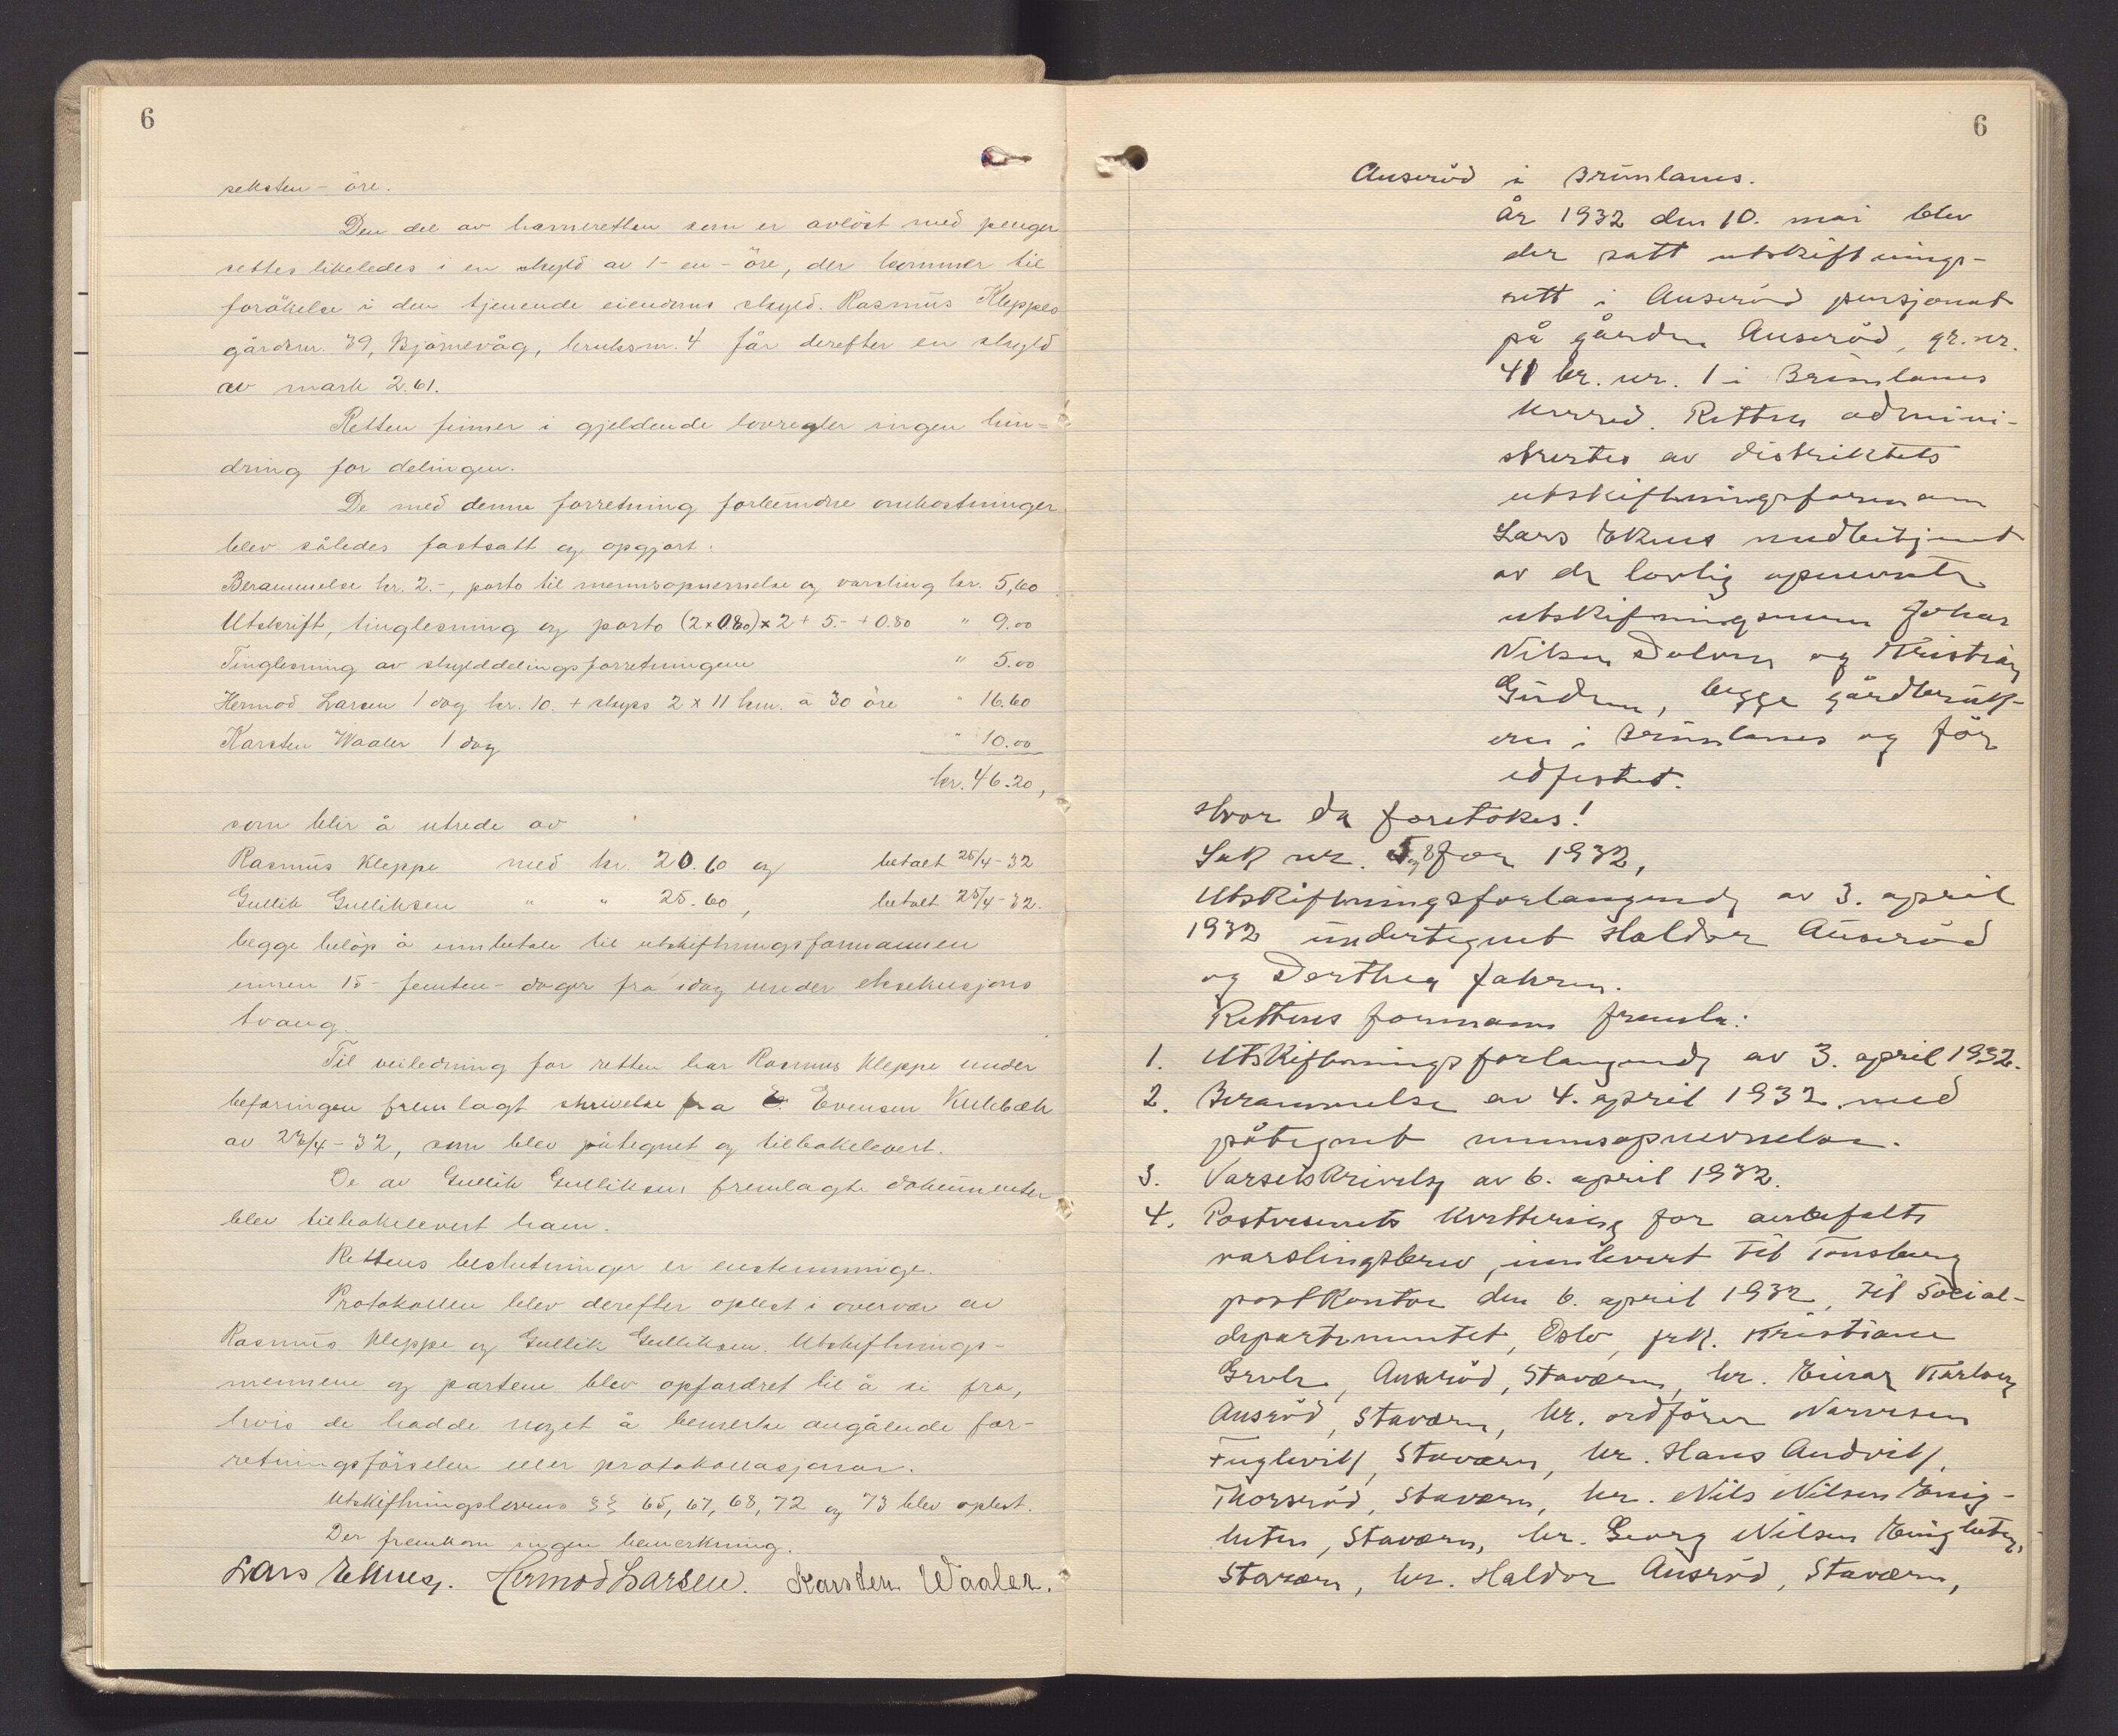 6
seksten - öre.
Den del av hamneretten som er avlöst med penger
settes likeledes i en skyld av 1 - en - öre, der kommer til
forökelse i den tjenende eiendoms skyld. Rasmus Kleppes
gårdsnr. 39, Bjørnevåg, bruksnr. 4 får derefter en skyld
av mark 2.61.
Retten finner i gjeldende lovregler ingen hin=
dring for delingen.
De med denne forretning forbundne omkostninger
blev således fastsatt og opgjort:
Berammelse kr. 2.-, porto til mannsopnevnelse og varsling kr. 5,60
Utskrift, tinglesning og porto (2x0.80)x2 + 5.- + 0.80 " 9.00
Tinglesning av skylddelingsforretningen " 5.00
Hermod Larsen 1 dag kr. 10. + skyss 2 x 11 km. à 30 öre " 16.60
Karsten Waaler 1 dag " 10.00
kr. 46.20,
som blir å utrede av
Rasmus Kleppe med kr. 20.60 og betalt 25/4-32
Gullik Gulliksen " " 25.60, betalt 25/4-32.
begge belöp å innbetale til utskiftningsformannen
innen 15 - femten - dager fra idag under eksekusjons
tvang.
Til veiledning for retten har Rasmus Kleppe under
befaringen fremlagt skrivelse fra E. Evensen Kulebæk
av 23/4-32, som blev påtegnet og tilbakelevert.
De av Gullik Gulliksen fremlagte dokumenter
blev tilbakelevert ham.
Rettens beslutninger er enstemmige.
Protokollen blev derefter oplest i overvær av
Rasmus Kleppe og Gullik Gulliksen. Utskiftnings-
mennene og partene blev opfordret til å si fra,
hvis de hadde noget å bemerke angående for-
retningsförselen eller protokollasjonen.
Utskiftningslovens §§ 65, 67, 68, 72 og 73 blev oplest.
Der fremkom ingen bemerkning.
Lars Eknes. Hermod Larsen. Karsten Waaler.
6
Anseröd i Brunlanes.
År 1932 den 10. mai blev
der satt utskiftnings-
rett i Anseröd pensjonat
på gården Anseröd, gr.nr.
41 br. nr. 1 i Brunlanes
herred. Retten admini-
strertes av distriktets
utskiftningsformann
Lars Eknes medbetjent
av de lovlig opnevnte
utskiftningsmenn Johan
Nilsen Dolven og Kristian
Gurdem, begge gårdbruk-
ere i Brunlanes og för
edfestet.
Hvor da foretokes!
Sak nr. 5 og 8 for 1932,
Utskiftningsforlangende av 3. april
1932 undertegnet Haldor Anseröd
og Dorthea Fahren.
Rettens formann fremla:
1. Utskiftningsforlangende av 3. april 1932.
2. Berammelse av 4. april 1932 med
påtegnet mannsopnevnelse.
3. Varselskrivelse av 6. april 1932.
4. Postvesenets kvittering for anbefalte
varslingsbrev, innlevert til Tönsberg
postkontor den 6. april 1932, til Social-
departementet, Oslo, frk. Kristiane
Grøhn, Anseröd, Staværn, hr. Einar Karlsen
Anseröd, Staværn, hr. ordförer Narvesen
Fuglevik, Staværn, hr. Hans Andvik,
Thorseröd, Staværn, hr. Nils Nilsen Enig-
heten, Staværn, hr. Georg Nilsen Enigheten,
Staværn, hr. Haldor Anseröd, Staværn,